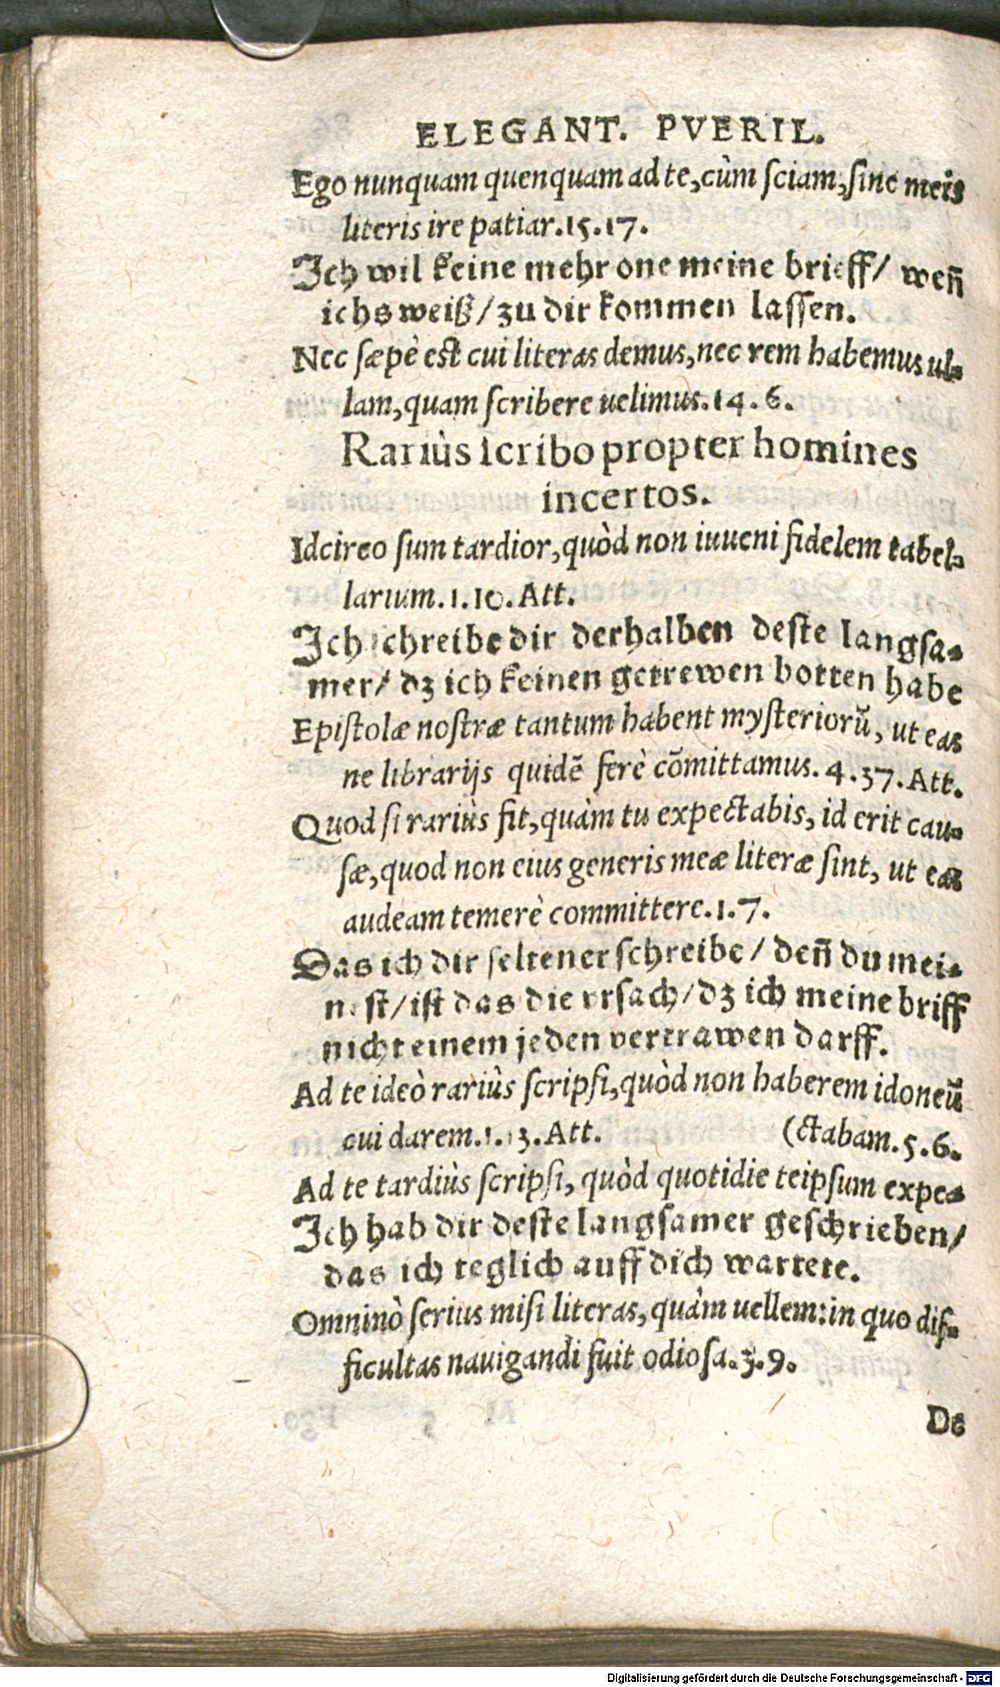 ELEGANT. PVERIL.
Ego nunquam quenquam ad te, cùm sciam, sine meis
literis ire patiar. 15. 17.
Ich wil keine mehr one meine brieff/ weñ
ichs weiß/ zu dir kommen lassen.
Nec sæpè est cui literas demus, nec rem habemus ul-
lam, quam scribere uelimus. 14. 6.
Rariùs scribo propter homines
incertos.
Idcirco sum tardior, quòd non inueni fidelem tabel-
larium. 1. 10. Att.
Ich schreibe dir derhalben deste langsa-
mer/ dz ich keinen getrewen botten habe
Epistolæ nostræ tantum habent mysteriorũ, ut eas
ne librarijs quidẽ ferè cõmittamus. 4. 37. Att.
Quod si rariùs fit, quàm tu expectabis, id erit cau-
sæ, quod non eius generis meæ literæ sint, ut eas
audeam temerè committere. 1. 7.
Das ich dir seltener schreibe/ deñ du mei-
nest/ ist das die vrsach/ dz ich meine briff
nicht einem jeden vertrawen darff.
Ad te ideò rariùs scripsi, quòd non haberem idoneũ
cui darem. 1. 13. Att. (ctabam. 5. 6.
Ad te tardiùs scripsi, quòd quotidie teipsum expe-
Ich hab dir deste langsamer geschrieben/
das ich teglich auff dich wartete.
Omninò serius misi literas, quàm uellem: in quo dif-
ficultas nauigandi fuit odiosa. 3. 9.
De
Digitalisierung gefördert durch die Deutsche Forschungsgemeinschaft - DFG